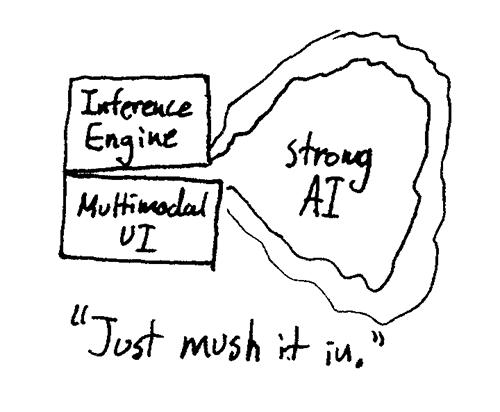 Inference
Engine
Multimodal
UI
strong
AI
"Just mush it in."